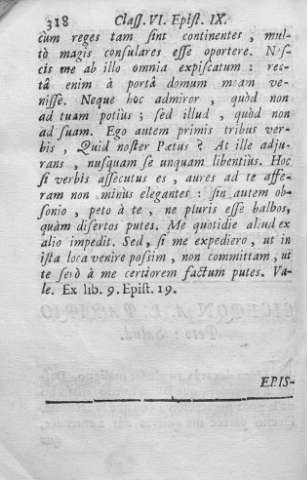 318 Class. VI. Epist. IX.
cùm reges tam sint continentes, mul-
tò magis consulares esse oportere. Nes-
cis me ab illo omnia expiscatum: rec-
tâ enim à portâ domum meam ve-
nisse. Neque hoc admiror, quòd non
ad tuam potius; sed illud, quòd non
ad suam. Ego autem primis tribus ver-
bis, Quid noster Pætus? At ille adju-
rans, nusquam se unquam libentius. Hoc
si verbis assecutus es, aures ad te affe-
ram non minus elegantes: sin autem ob-
sonio, peto à te, ne pluris esse balbos,
quàm disertos putes. Me quotidie aliud ex
alio impedit. Sed, si me expediero, ut in
ista loca venire possim, non committam, ut
te serò à me certiorem factum putes. Va-
le. Ex lib. 9. Epist. 19.
EPIS-